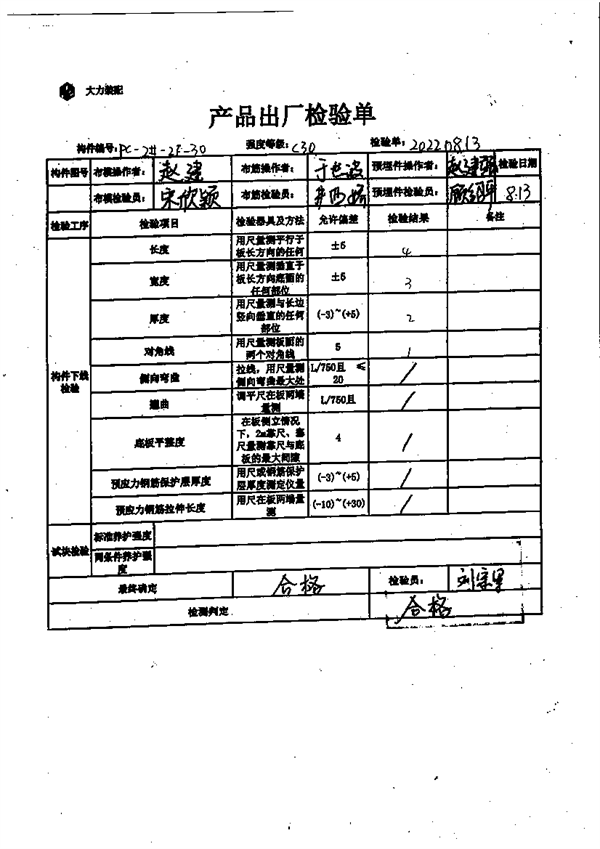 大力装配
产品出厂检验单
构件编号: PC-2#-2F-30 强度等级: C30 检验单: 20220813
构件图号 布模操作者: 赵建 布筋操作者: 预埋件操作者: 检验日期
布模检验员: 宋欣颖 布筋检验员: 预埋件检验员: 8.13
检验工序 检验项目 检验器具及方法 允许偏差 检验结果 备注
构件下线检验
长度 用尺量测平行于板长方向的任何 ±5 4
宽度 用尺量测垂直于板长方向底面的任何部位 ±5 3
厚度 用尺量测与长边竖向垂直的任何部位 (-3)~(+5) 2
对角线 用尺量测板面的两个对角线 5 1
侧向弯曲 拉线，用尺量测侧向弯曲最大处 L/750且 ≤20 /
翘曲 调平尺在板两端量测 L/750且 /
底板平整度 在板侧立情况下，2m靠尺、塞尺量测靠尺与底板的最大间隙 4 /
预应力钢筋保护层厚度 用尺或钢筋保护层厚度测定仪量 (-3)~(+5) /
预应力钢筋拉伸长度 用尺在板两端量测 (-10)~(+30) /
试块检验 标准养护强度
同条件养护强度
最终确定 合格 检验员:
检测判定 合格